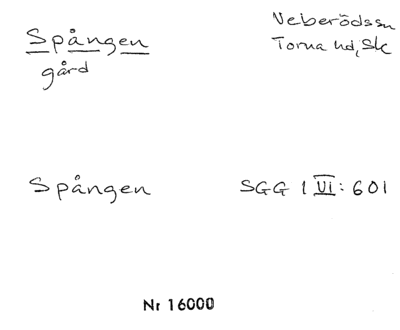 Spången
gård
Veberödssn
Torna hd, Sk
Spången
SGG 1 VI: 601
Nr 16000